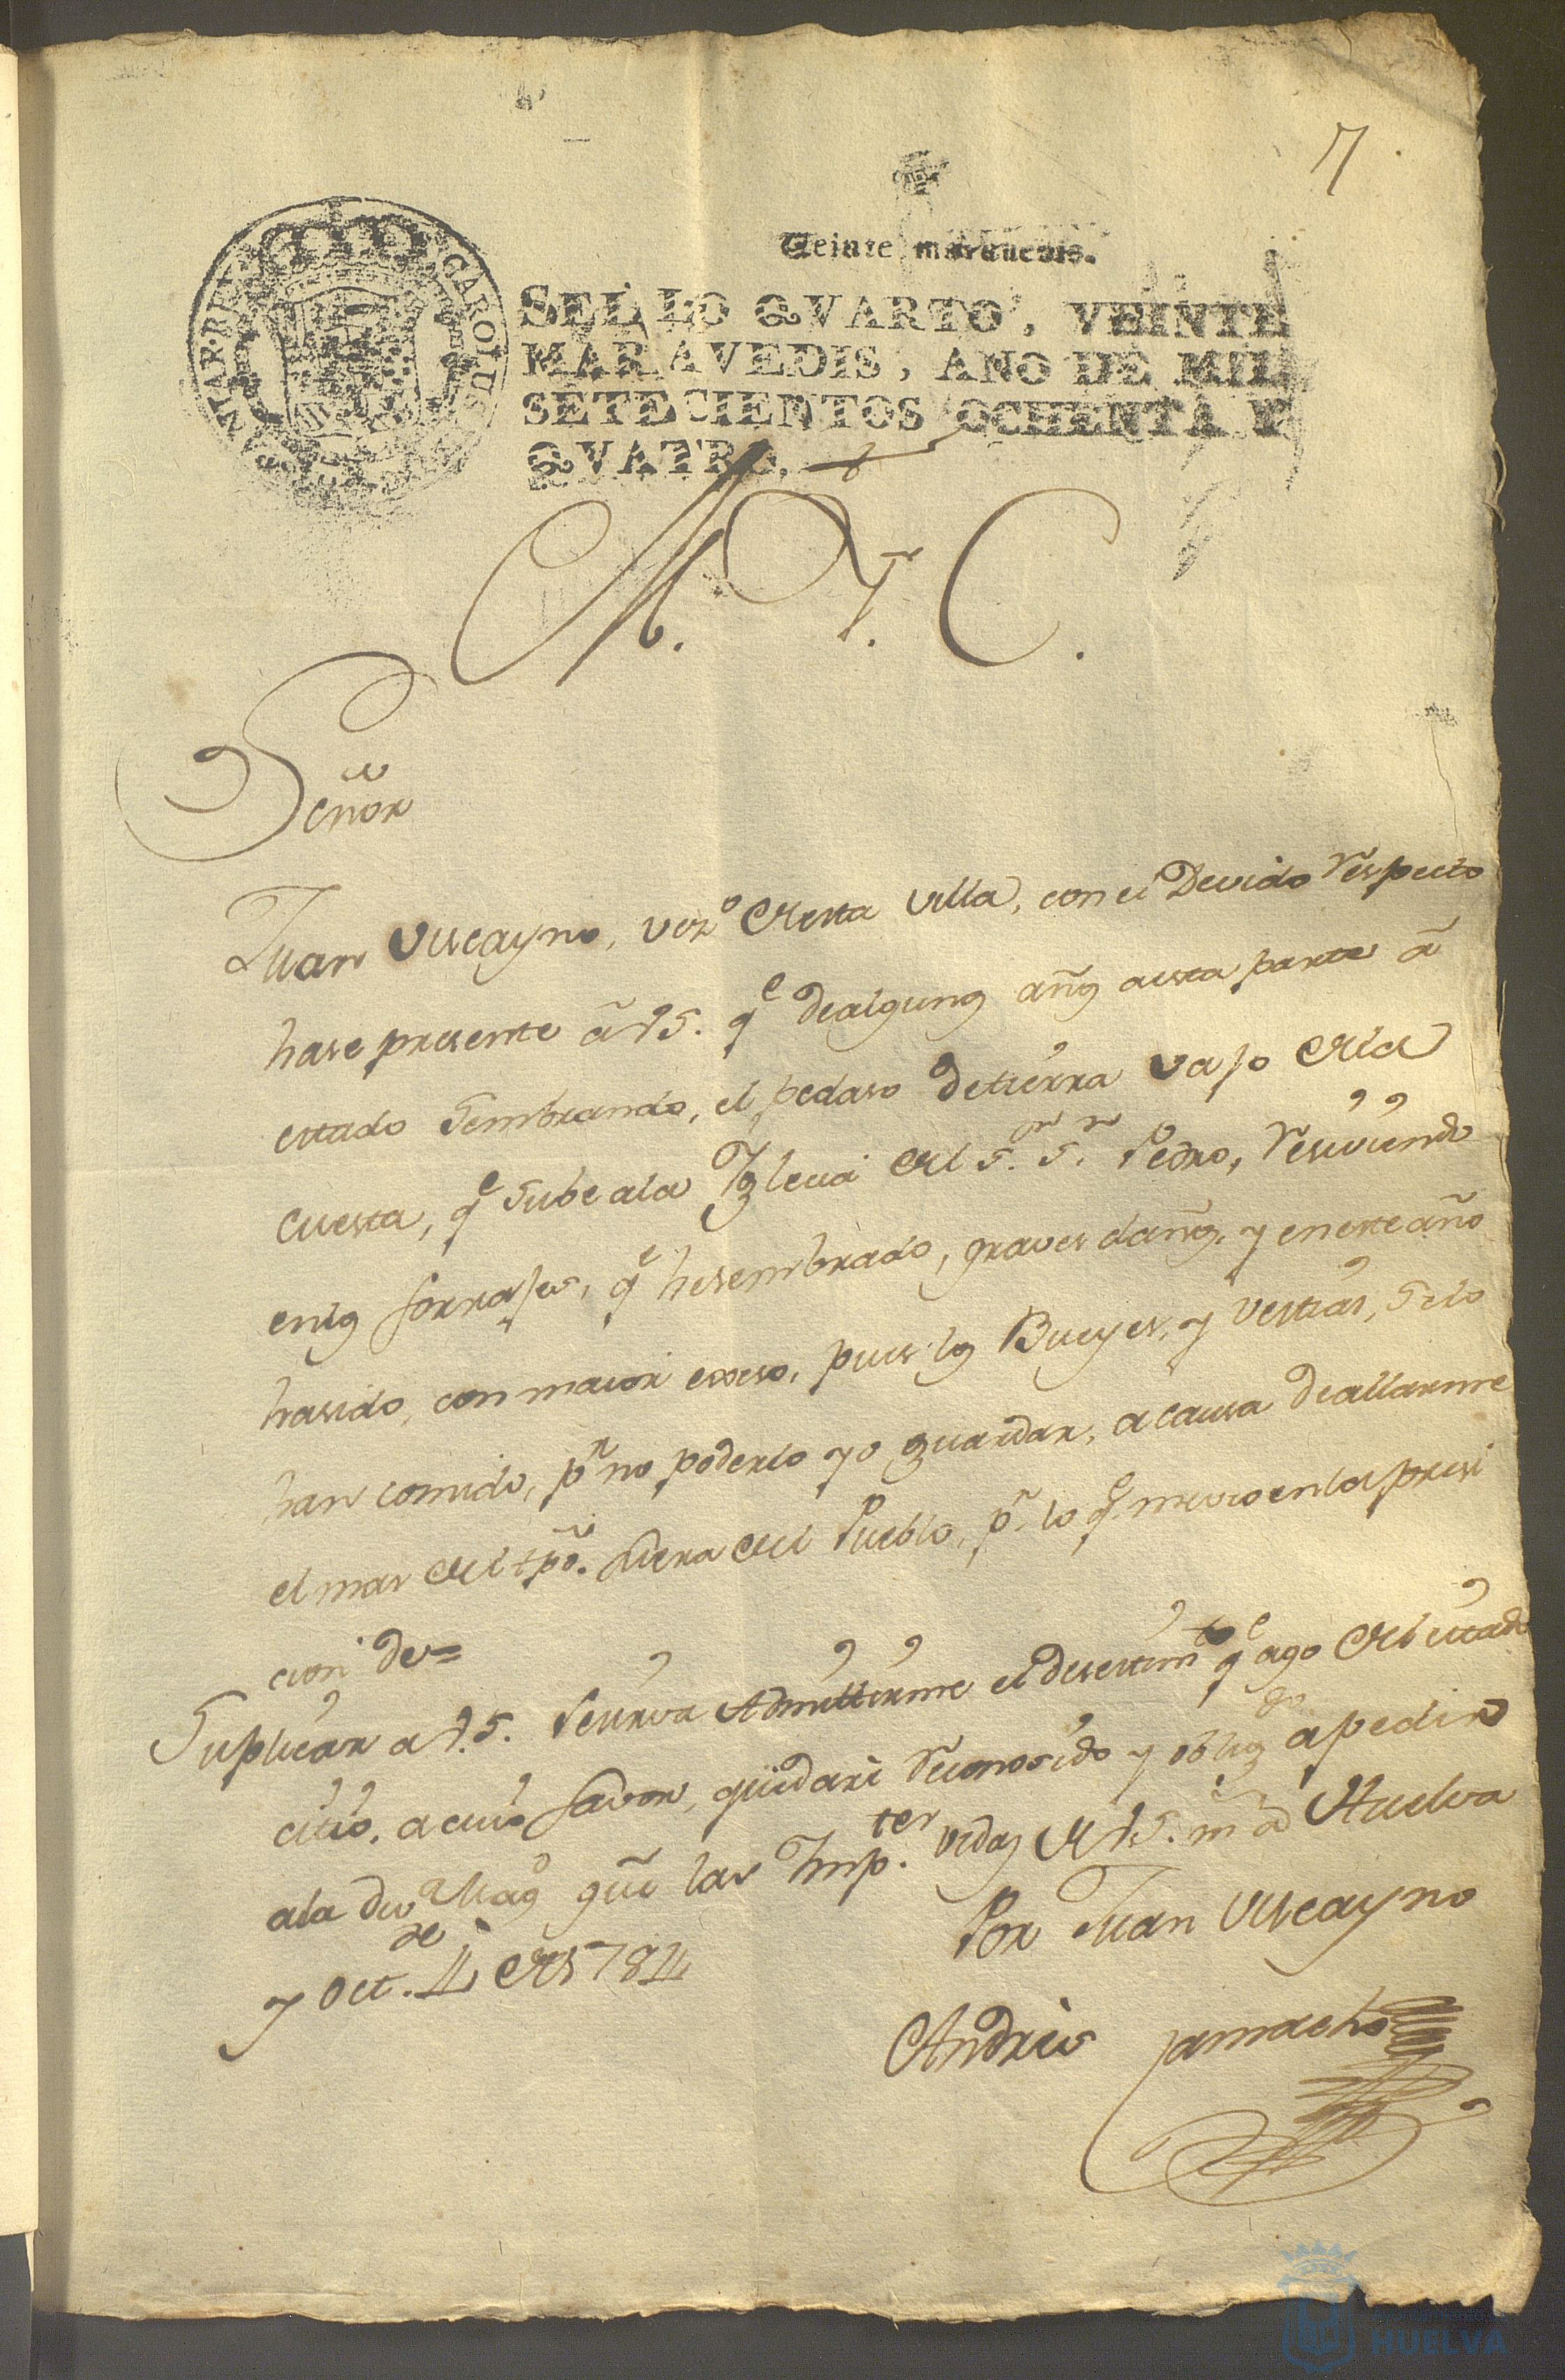 7
Veinte maravedis.
SELLO QVARTO, VEINTE
MARAVEDIS, AÑO DE MIL
SETECIENTOS OCHENTA Y
QVATRO.
CAROLUS
M. Y. C.
Señor
Juan Viscayno, vez.º de esta villa, con el Devido respecto
hase presente â VS. q.e de algunos años a esta parte â
estado Sembrando, el pedaso de tierra vajo de la
cuesta, q.e sube a la Yglecia del S.or S.n Pedro, resiviendo
en los forrajes, q.e he sembrado, graves daños, y en este año
ha sido, con maior exseso, pues los Bueyes, y vestias, se lo
han comido, p.r no poderlo yo guardar, a causa de allarme
el mas del tpô. fuera del Pueblo, p.r lo q.e me veo en la presi
cion de=
Suplicar a VS. se sirva Admittirme el desestim.to q.e ago del citado
citio, a cuio favor, quedare reconosido y oblig.do a pedir
a la Div.a Mag.d gũe las Imp.tes vidas de VS. m.s a.s Huelva
y Oct.re 4 de 1784
Por Juan Viscayno
Andres Camacho
HUELVA